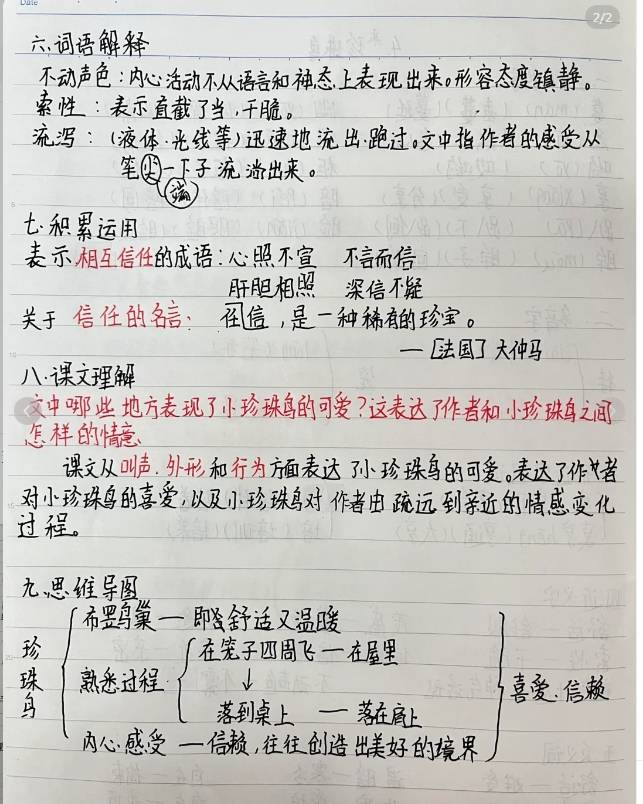 Date
2/2
六、词语解释
不动声色：内心活动不从语言和神态上表现出来。形容态度镇静。
索性：表示直截了当，干脆。
流泻：（液体、光线等）迅速地流出、跑过。文中指作者的感受从
笔尖一下子流淌出来。
端
七、积累运用
表示相互信任的成语：心照不宣 不言而信
肝胆相照 深信不疑
关于信任的名言：信，是一种稀有的珍宝。
—［法国］大仲马
八、课文理解
文中哪些地方表现了小珍珠鸟的可爱？这表达了作者和小珍珠鸟之间
怎样的情意、
课文从叫声、外形和行为方面表达了小珍珠鸟的可爱。表达了作者
对小珍珠鸟的喜爱，以及小珍珠鸟对作者由疏远到亲近的情感变化
过程。
九、思维导图
珍珠鸟
布置鸟巢—即舒适又温暖
熟悉过程
在笼子四周飞—在屋里
↓
落到桌上 —落在肩上
内心感受—信赖，往往创造出美好的境界
喜爱、信赖